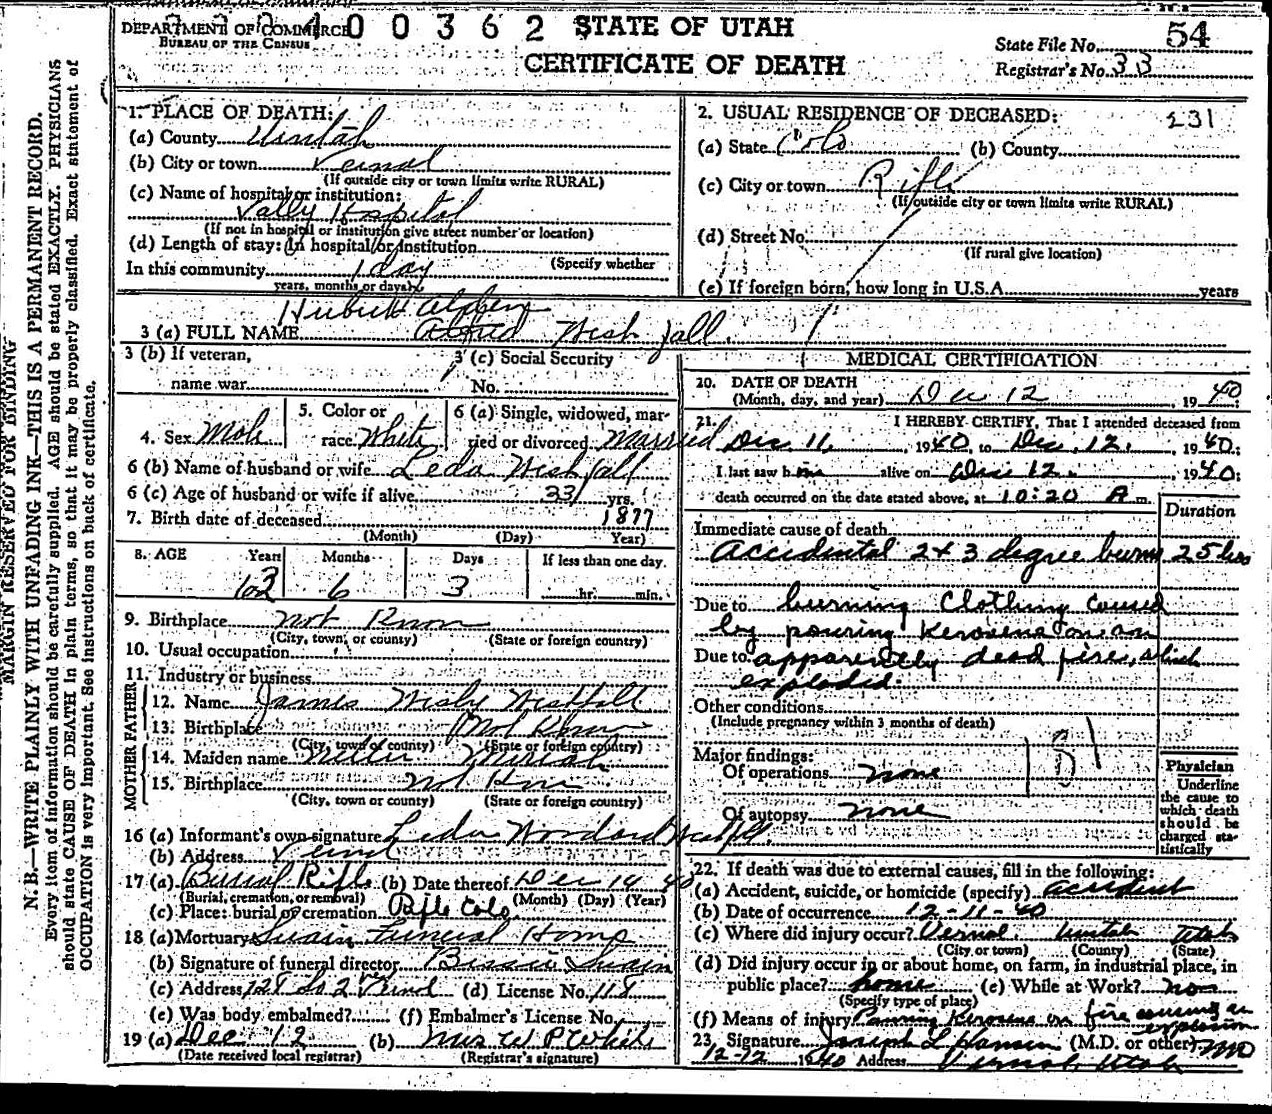 7 3 7 4 0 0 3 6 2 STATE OF UTAH
DEPARTMENT OF COMMERCE
BUREAU OF THE CENSUS
CERTIFICATE OF DEATH
State File No. 54
Registrar's No. 33
MARGIN RESERVED FOR BINDING
N. B.—WRITE PLAINLY WITH UNFADING INK—THIS IS A PERMANENT RECORD.
Every item of information should be carefully supplied. AGE should be stated EXACTLY. PHYSICIANS
should state CAUSE OF DEATH in plain terms, so that it may be properly classified. Exact statement of
OCCUPATION is very important. See instructions on back of certificate.
1. PLACE OF DEATH:
(a) County Uintah
(b) City or town Vernal
(If outside city or town limits write RURAL)
(c) Name of hospital or institution:
Vally Hospital
(If not in hospital or institution give street number or location)
(d) Length of stay: (In hospital or institution
(Specify whether
In this community 1 day
years, months or days)
2. USUAL RESIDENCE OF DECEASED: 231
(a) State Colo (b) County
(c) City or town Rifle
(If outside city or town limits write RURAL)
(d) Street No.
(If rural give location)
(e) If foreign born, how long in U.S.A. years
Hubert
3 (a) FULL NAME Alfred West fall.
3 (b) If veteran,
name war
3 (c) Social Security
No.
4. Sex Male
5. Color or
race White
6 (a) Single, widowed, mar-
ried or divorced Married
6 (b) Name of husband or wife Leda Westfall
6 (c) Age of husband or wife if alive 33 yrs.
7. Birth date of deceased 1877
(Month) (Day) Year)
8. AGE Years Months Days If less than one day.
63 6 3 hr. min.
9. Birthplace not Know
(City, town, or county) (State or foreign country)
10. Usual occupation
11. Industry or business
FATHER
12. Name James Wesly Westfall
13. Birthplace Not Know
(City, town or county) (State or foreign country)
MOTHER
14. Maiden name Nellie
15. Birthplace not Know
(City, town or county) (State or foreign country)
16 (a) Informant's own signature Leda Woodard Westfall
(b) Address Vernal
17 (a) Burial Rifle (b) Date thereof Dec 14 40
(Burial, cremation, or removal) (Month) (Day) (Year)
(c) Place: burial or cremation Rifle Colo.
18 (a) Mortuary Swain Funeral Home
(b) Signature of funeral director Bessie Swain
(c) Address 128 So 2 Vernal (d) License No. 118
(e) Was body embalmed? (f) Embalmer's License No.
19 (a) Dec 12 (b) Mrs W. P. White
(Date received local registrar) (Registrar's signature)
MEDICAL CERTIFICATION
20. DATE OF DEATH
(Month, day, and year) Dec 12, 1940;
21. I HEREBY CERTIFY, That I attended deceased from
Dec. 11, 1940, to Dec. 12, 1940;
I last saw him alive on Dec 12, 1940;
death occurred on the date stated above, at 10:20 A m.
Duration
Immediate cause of death
Accidental 2 & 3 degree burns 25 hrs
Due to burning clothing caused
by pouring Kerosene on an
Due to apparently dead fire, which
exploded.
Other conditions
(Include pregnancy within 3 months of death)
Major findings:
Of operations none
Of autopsy none
181
Physician
Underline
the cause to
which death
should be
charged sta-
tistically
22. If death was due to external causes, fill in the following:
(a) Accident, suicide, or homicide (specify) accident
(b) Date of occurrence 12-11-40
(c) Where did injury occur? Vernal Uintah Utah
(City or town) (County) (State)
(d) Did injury occur in or about home, on farm, in industrial place, in
public place? home (e) While at Work? no
(Specify type of place)
(f) Means of injury Pouring Kerosene on fire causing an
explosion
23. Signature Joseph L Hansen (M.D. or other) MD
12-12 1940 Address Vernal, Utah